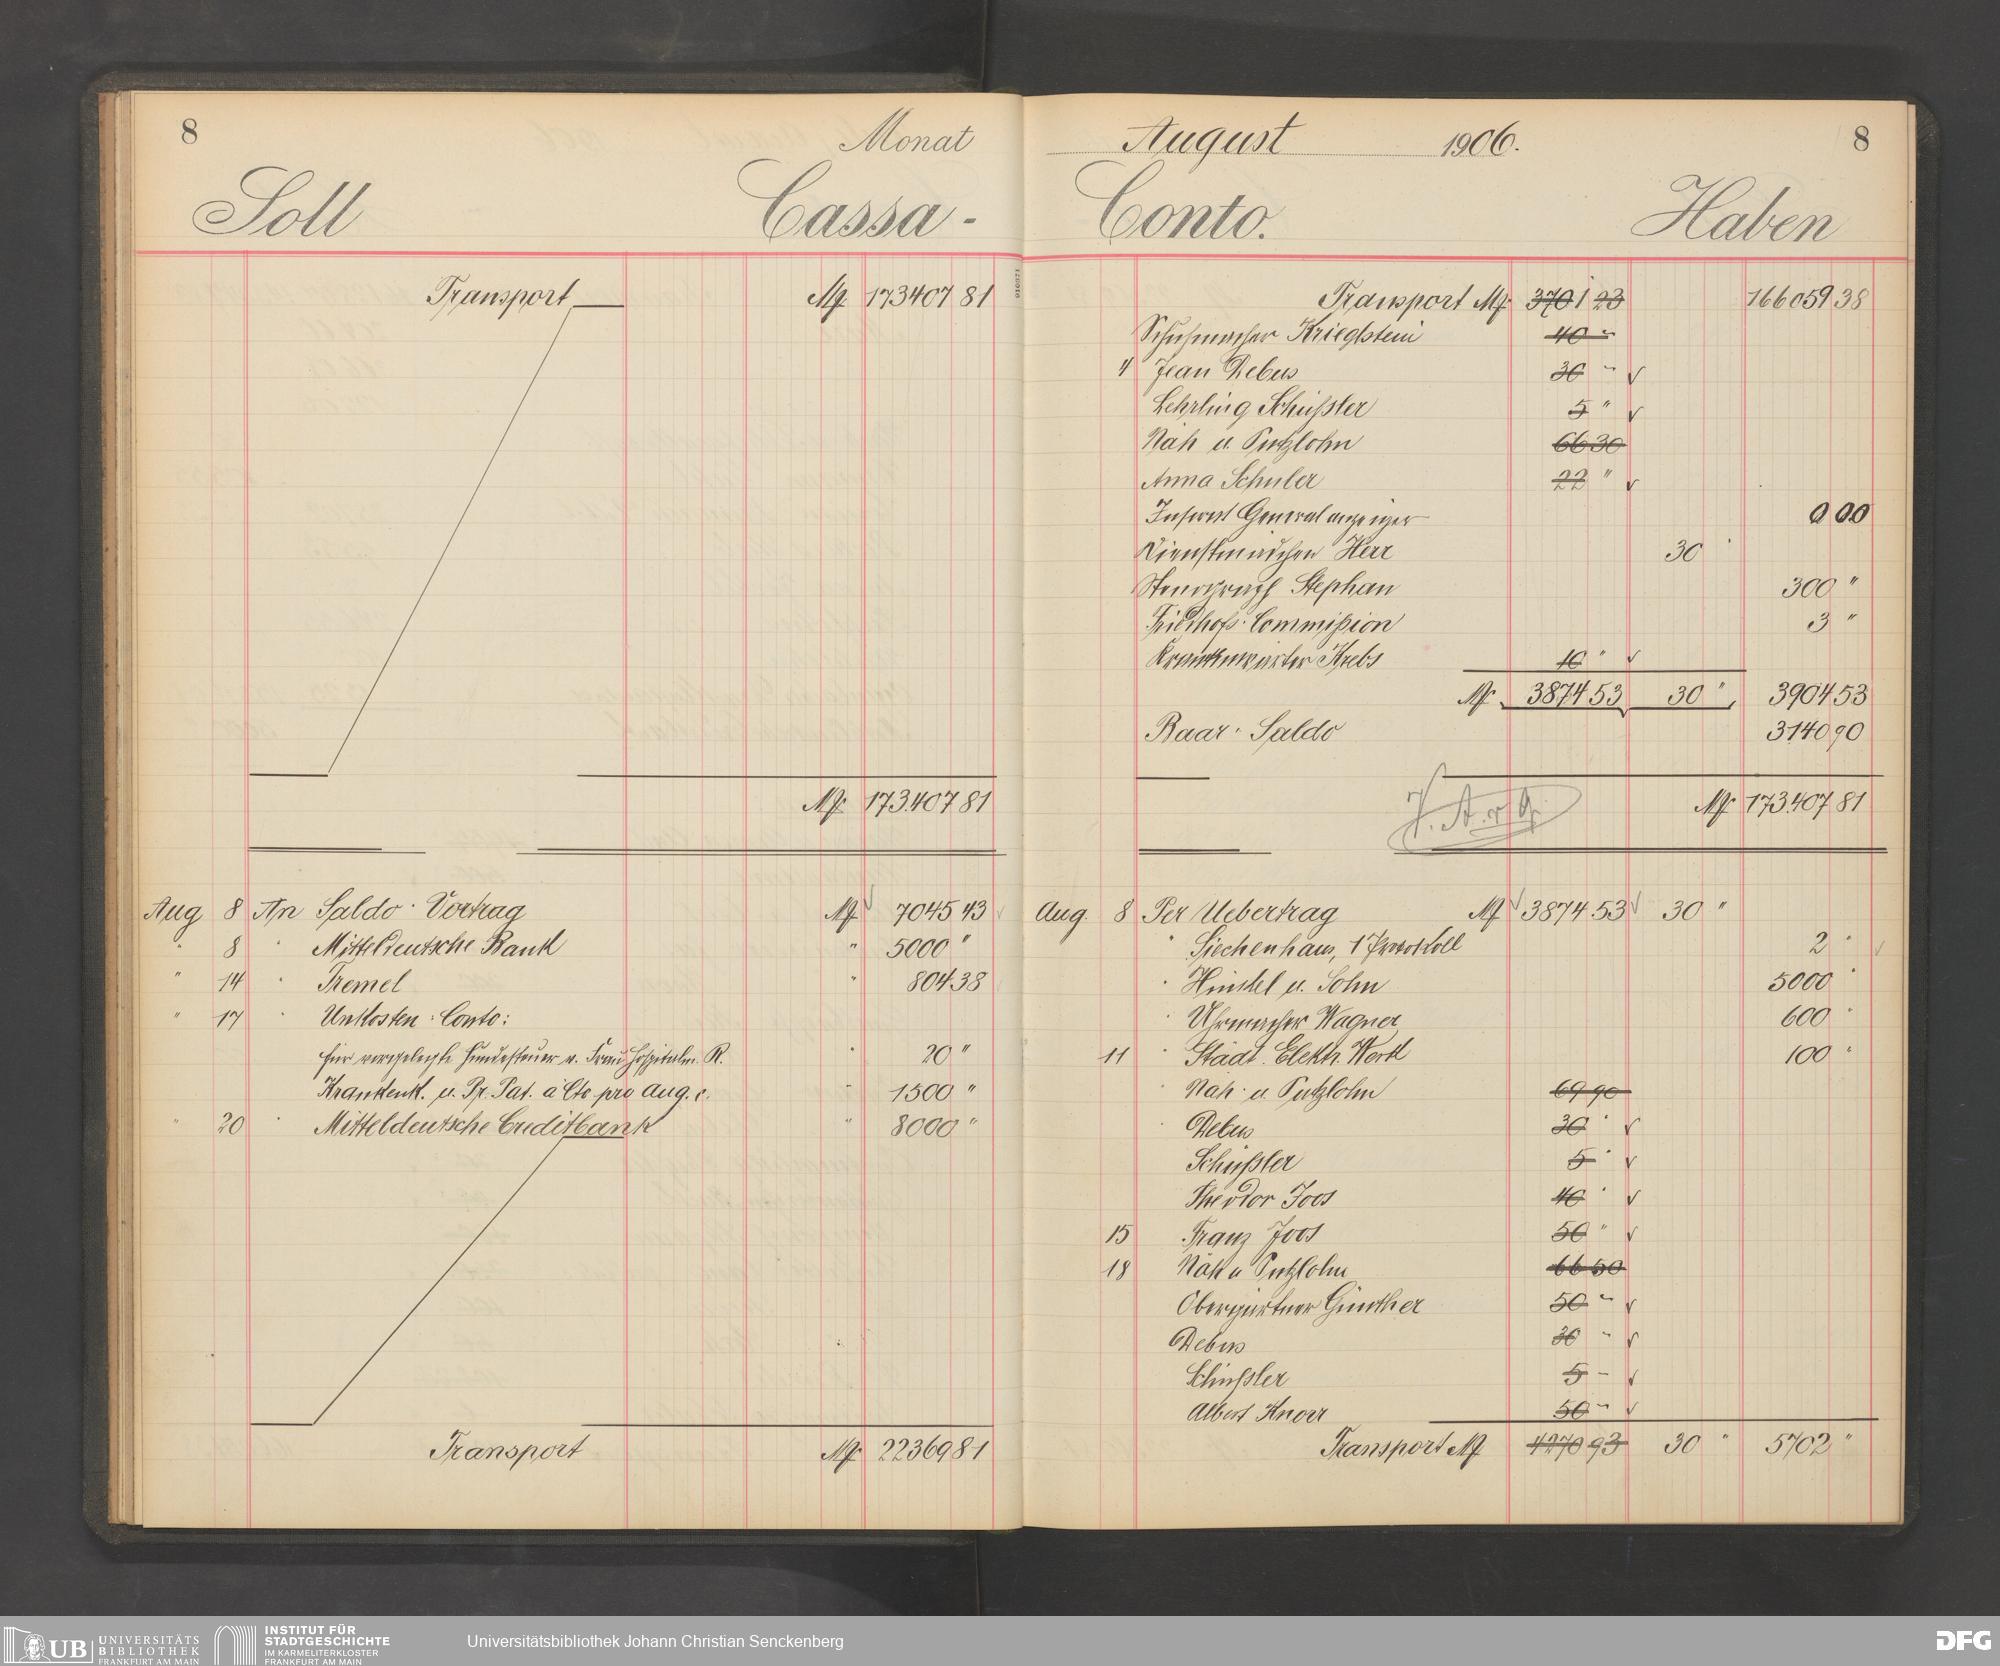 8
Monat
Soll
Cassa-
Transport M 173407 81
M 173.407 81
Aug 8 An Saldo-Vortrag M 7045 43
" 8 " Mitteldeutsche Bank " 5000 "
" 14 " Tremel " 804.38
" 17 " Unkosten-Conto:
für vorgelegte Hundesteuer v. Frau Hospitalm. R. " 20 "
Krankenk. u. Pr. Pat. a Cto pro Aug. c. " 1500 "
" 20 " Mitteldeutsche Creditbank " 8000 "
Transport M 22369 81
August 1906.
8
Conto.
Haben
Transport M 3701 23 166059 38
Schuhmacher Krieglstein 40 "
4 Jean Debus 30 "
Lehrling Schüßler 5 "
Näh u. Putzlohn 66 30
Anna Schuler 22 "
Inserat Generalanzeiger
Dienstmädchen Herr 30 "
Stenograph Stephan 300 "
Friedhofs-Commißion 3 "
Krankenwärter Krebs 10 "
M 3874 53 30 " 3904 53
Baar-Saldo 3140 90
M 173.407 81
Aug. 8 Per Uebertrag M 3874 53 30 "
" Siechenhaus, 1 Protokoll 2 "
" Hinkel u. Sohn 5000 "
" Uhrmacher Wagner 600 "
11 " Städt. Elektr. Werk 100 "
" Näh- u. Putzlohn 69 90
" Debus 30 "
Schüßler 5 "
Theodor Joos 40 "
15 Franz Joos 50 "
18 Näh u Putzlohn 66 50
Obergärtner Günther 50 "
Debus 30 "
Schüßler 5 -
Albert Knorr 50 "
Transport M 4270 93 30 " 5702 "
UB UNIVERSITÄTS
BIBLIOTHEK
FRANKFURT AM MAIN
INSTITUT FÜR
STADTGESCHICHTE
IM KARMELITERKLOSTER
FRANKFURT AM MAIN
Universitätsbibliothek Johann Christian Senckenberg
DFG